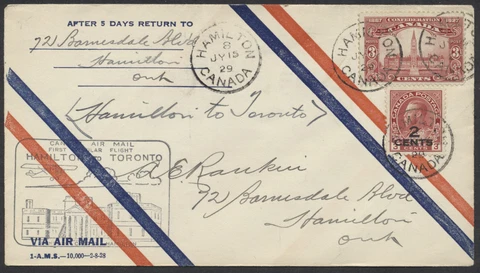 AFTER 5 DAYS RETURN TO
72 Barnesdale Blvd
Hamilton
Ont
HAMILTON
8
JY 15
29
CANADA
1867 CONFEDERATION 1927
3 3
CENTS
HAMILTON
CANADA
CANADA POSTAGE
2
CENTS
CANADA
(Hamilton to Toronto)
CANADIAN AIR MAIL
FIRST REGULAR FLIGHT
HAMILTON TO TORONTO
E Rankin
72 Barnesdale Blvd
Hamilton
Ont
VIA AIR MAIL
1-A.M.S.-10,000-2-8-28